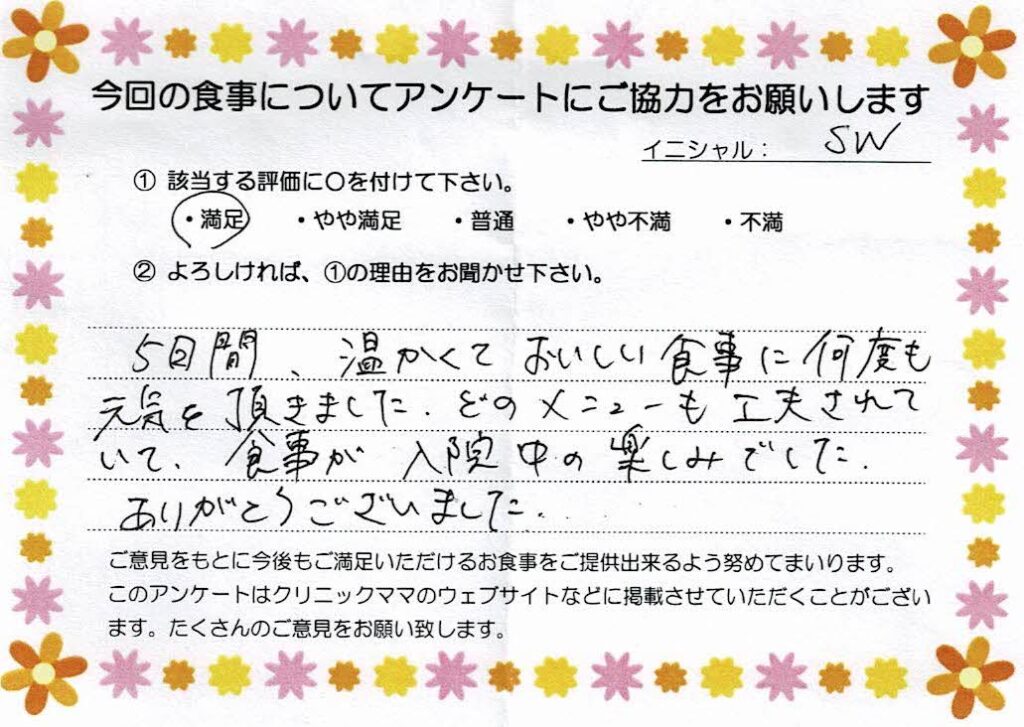 今回の食事についてアンケートにご協力をお願いします
イニシャル： SW
① 該当する評価に〇を付けて下さい。
・満足 ・やや満足 ・普通 ・やや不満 ・不満
② よろしければ、①の理由をお聞かせ下さい。
5日間、温かくておいしい食事に何度も
元気を頂きました。どのメニューも工夫されて
いて、食事が入院中の楽しみでした。
ありがとうございました。
ご意見をもとに今後もご満足いただけるお食事をご提供出来るよう努めてまいります。
このアンケートはクリニックママのウェブサイトなどに掲載させていただくことがござい
ます。たくさんのご意見をお願い致します。